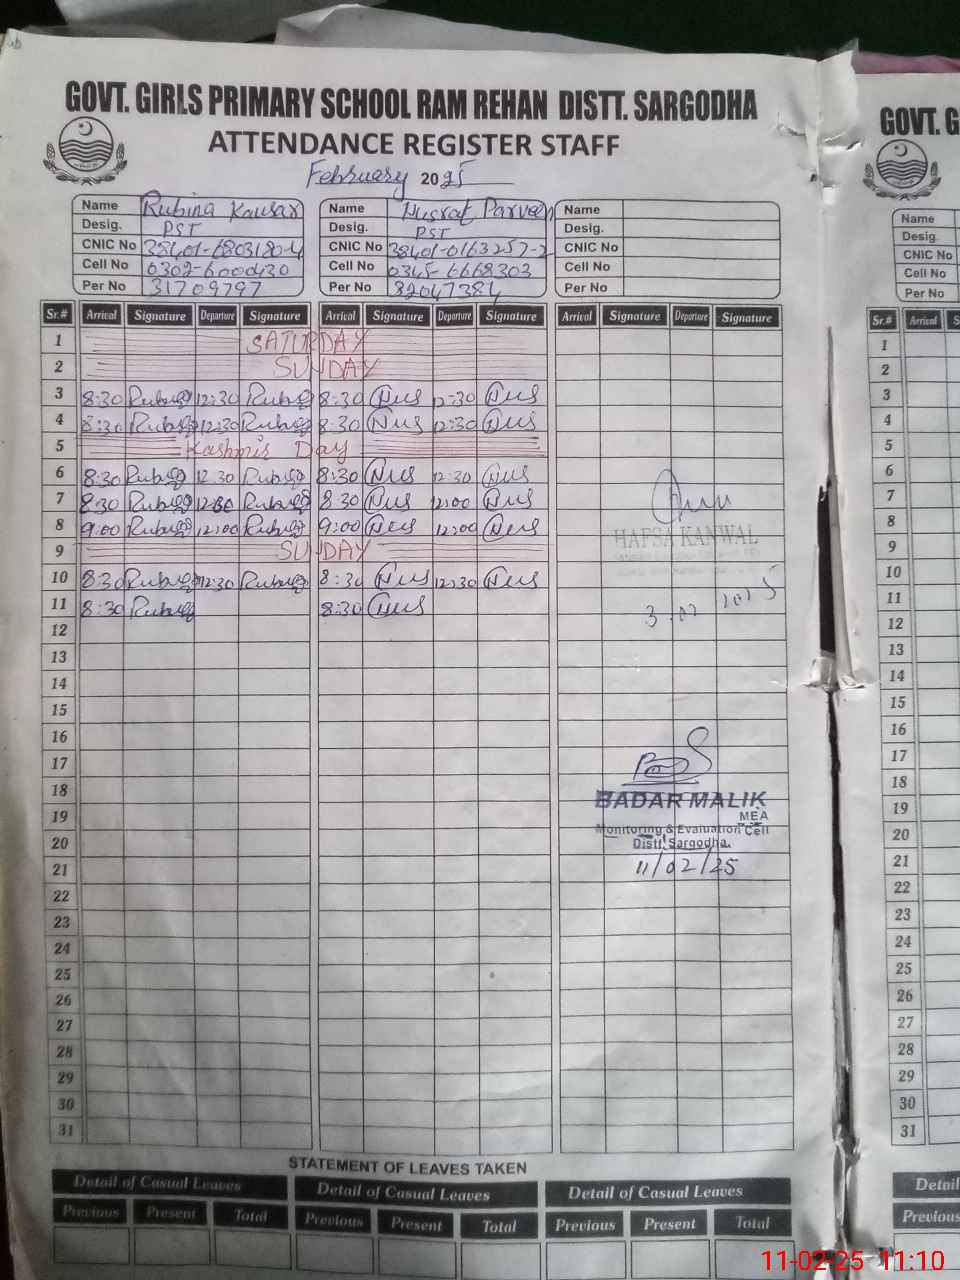 GOVT. GIRLS PRIMARY SCHOOL RAM REHAN DISTT. SARGODHA
ATTENDANCE REGISTER STAFF
February 2025
Name Rubina Kausar Name Nusrat Parveen Name
Desig. PST Desig. PST Desig.
CNIC No 38401-6803180-4 CNIC No 38401-0163257-2 CNIC No
Cell No 0302-6000430 Cell No 0345-6668303 Cell No
Per No 31709797 Per No 82047384 Per No
Sr.# Arrival Signature Departure Signature Arrival Signature Departure Signature Arrival Signature Departure Signature
1 SATURDAY
2 SUNDAY
3 8:30 12:30 8:30 Nus 12:30 Nus
4 8:30 12:30 8:30 Nus 12:30 Nus
5 Kashmir Day
6 8:30 12:30 8:30 Nus 12:30 Nus
7 8:30 8:30 Nus 12:00 Nus
8 9:00 12:00 9:00 Nus 12:00 Nus
HAFSA KANWAL
9 SUNDAY
10 8:30 12:30 8:30 Nus 12:30 Nus
11 8:30 8:30 Nus
12
13
14
15
16
17
18
BADAR MALIK
19
MEA
20
Monitoring & Evaluation Cell
Distt. Sargodha.
21
11/02/25
22
23
24
25
26
27
28
29
30
31
STATEMENT OF LEAVES TAKEN
Detail of Casual Leaves Detail of Casual Leaves Detail of Casual Leaves
Previous Present Total Previous Present Total Previous Present Total
GOVT. G
Name
Desig.
CNIC No
Cell No
Per No
Sr.# Arrival S
1
2
3
4
5
6
7
8
9
10
11
12
13
14
15
16
17
18
19
20
21
22
23
24
25
26
27
28
29
30
31
Detail
Previous
11-02-25 11:10